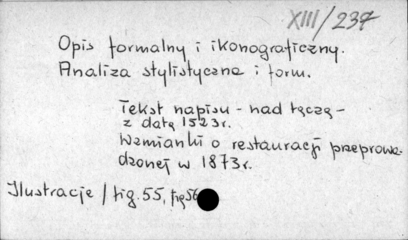 XIII/237
Opis formalny i ikonograficzny.
Analiza stylistyczna i form.
Tekst napisu - nad tęczą -
z datą 1523r.
Wzmianki o restauracji przeprowa-
dzonej w 1873r.
Ilustracje / fig. 55, fig 56